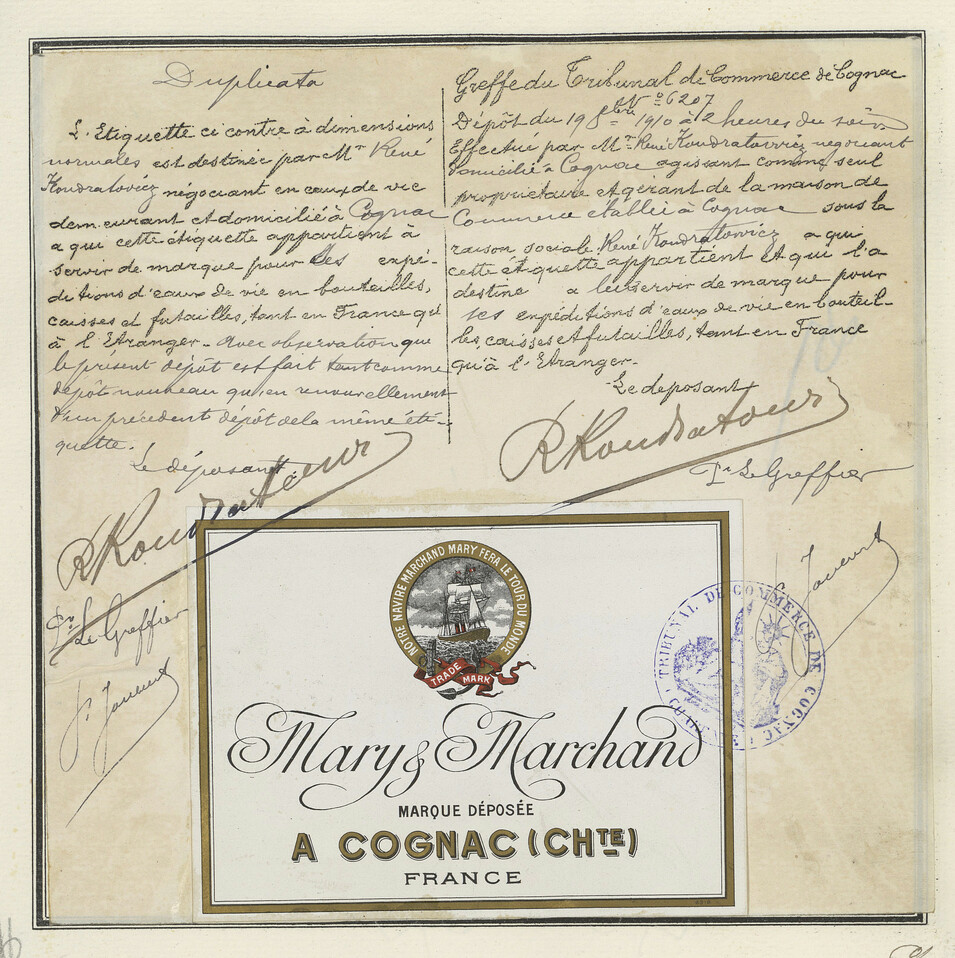 Duplicata
L'Etiquette ci contre à dimensions
normales est destinée par Mr René
Kondratowicz négociant en eaux de vie
demeurant et domicilié à Cognac
a qui cette étiquette appartient à
servir de marque pour les expé-
ditions d'eaux de vie en bouteilles,
caisses et futailles, tant en France qu'
à l'Etranger. Avec observation que
le présent dépôt est fait tant comme
dépôt nouveau qu'en renouvellement
d'un précédent dépôt de la même éti-
quette.
Le déposant
RKondratowicz
Pr Le Greffier
Greffe du Tribunal de Commerce de Cognac
No 6207
Dépôt du 19 8bre 1910 à 2 heures du soir
Effectué par Mr René Kondratowicz négociant
domicilié à Cognac agissant comme seul
propriétaire et gérant de la maison de
Commerce établie à Cognac sous la
raison sociale René Kondratowicz a qui
cette étiquette appartient et qui l'a
destine a lui servir de marque pour
ses expéditions d'eaux de vie en bouteil-
les caisses et futailles, tant en France
qu'à l'Etranger.
Le deposant
RKondratowicz
Pr Le Greffier
NOTRE NAVIRE MARCHAND MARY FERA LE TOUR DU MONDE
TRADE MARK
Mary & Marchand
MARQUE DÉPOSÉE
A COGNAC (CHTE)
FRANCE
TRIBUNAL DE COMMERCE DE COGNAC